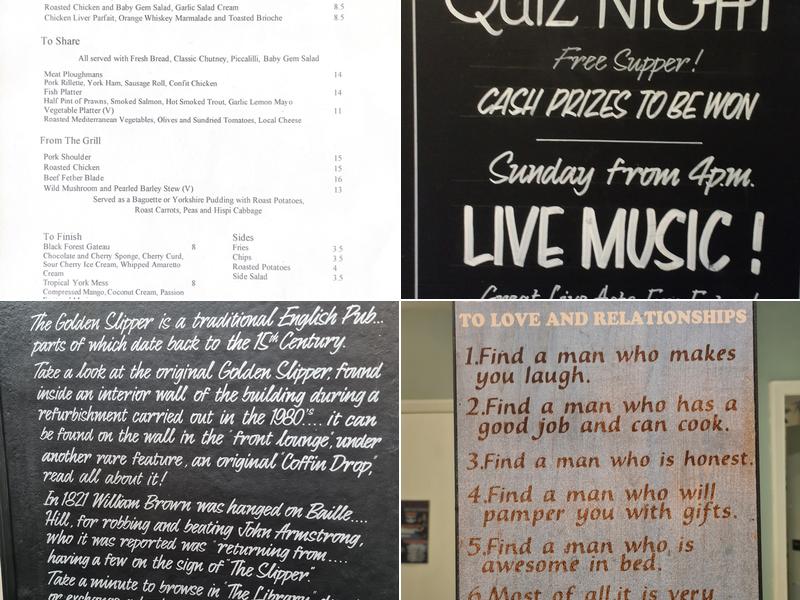 Roasted Chicken and Baby Gem Salad, Garlic Salad Cream 8.5
Chicken Liver Parfait, Orange Whiskey Marmalade and Toasted Brioche 8.5
To Share
All served with Fresh Bread, Classic Chutney, Piccalilli, Baby Gem Salad
Meat Ploughmans 14
Pork Rillette, York Ham, Sausage Roll, Confit Chicken
Fish Platter 14
Half Pint of Prawns, Smoked Salmon, Hot Smoked Trout, Garlic Lemon Mayo
Vegetable Platter (V) 11
Roasted Mediterranean Vegetables, Olives and Sundried Tomatoes, Local Cheese
From The Grill
Pork Shoulder 15
Roasted Chicken 15
Beef Fether Blade 16
Wild Mushroom and Pearled Barley Stew (V) 13
Served as a Baguette or Yorkshire Pudding with Roast Potatoes,
Roast Carrots, Peas and Hispi Cabbage
To Finish
Black Forest Gateau 8
Chocolate and Cherry Sponge, Cherry Curd,
Sour Cherry Ice Cream, Whipped Amaretto
Cream
Tropical York Mess 8
Compressed Mango, Coconut Cream, Passion
Sides
Fries 3.5
Chips 3.5
Roasted Potatoes 4
Side Salad 3.5
Quiz NIGHT
Free Supper!
CASH PRIZES TO BE WON
Sunday from 4p.m.
LIVE MUSIC!
Great Live Acts
The Golden Slipper is a traditional English Pub...
parts of which date back to the 15th Century.
Take a look at the original Golden Slipper, found
inside an interior wall of the building during a
refurbishment carried out in the 1980's.... it can
be found on the wall in the 'front lounge', under
another rare feature, an original 'Coffin Drop',
read all about it!
In 1821 William Brown was hanged on Baille....
Hill, for robbing and beating John Armstrong,
who it was reported was "returning from....
having a few on the sign of "The Slipper".
Take a minute to browse in 'The Library'
or exchange
TO LOVE AND RELATIONSHIPS
1.Find a man who makes
you laugh.
2.Find a man who has a
good job and can cook.
3.Find a man who is honest.
4.Find a man who will
pamper you with gifts.
5.Find a man who is
awesome in bed.
6.Most of all it is very